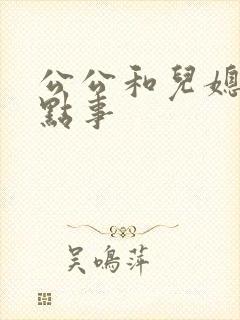 公公和兒媳
點事
吳鳴萍